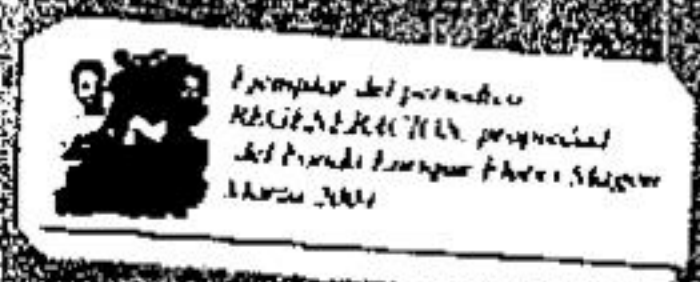 Ejemplar del periodico
REGENERACION, propiedad
del Fondo Enrique Flores Magón
Marzo 2001